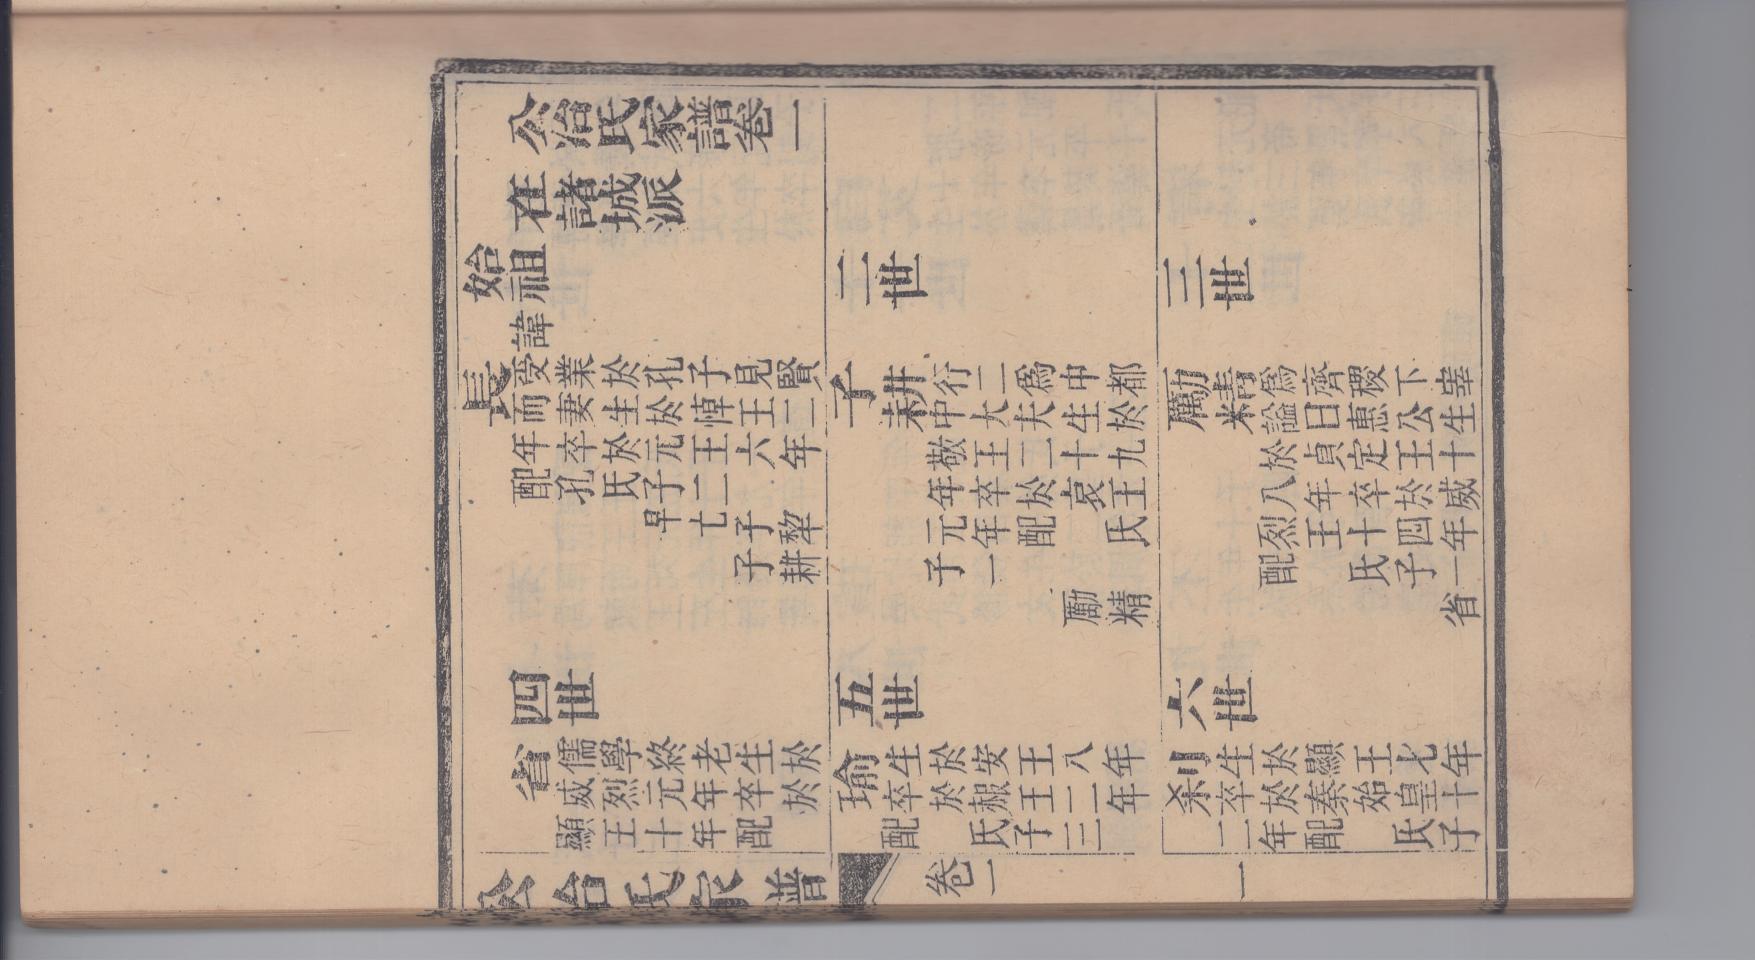 公冶氏家譜卷一
在諸城派
始祖
諱
長
受業於孔子見賢
而妻生於悼王二
年卒於元王六年
配孔氏子二
早亡子犂
子耕
二世
子耕
行二為中都
中大夫生於
敬王二十九
年卒於哀王
元年配氏
子一
勵精
三世
勵精
為齊稷下宰
謚曰惠公生
於貞定王十
八年卒於威
烈王十四年
配氏子一
省
四世
省
儒學終老生於
威烈元年卒於
顯王十年配
五世
瑜
生於安王八年
卒於赧王二年
配氏子三
六世
刹
生於顯王七年
卒於秦始皇十
二年配氏子
公冶氏家譜
卷一
一